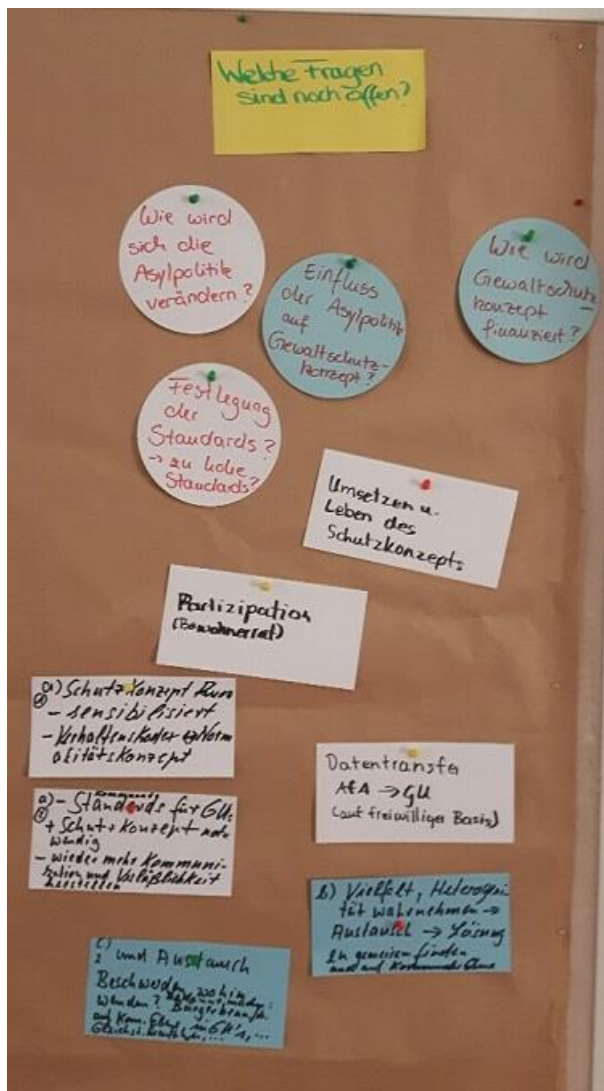 Welche Fragen
sind noch offen?
Wie wird
sich die
Asylpolitik
verändern?
Einfluss
der Asylpolitik
auf
Gewaltschutz-
konzept?
Wie wird
Gewaltschutz-
konzept
finanziert?
Festlegung
der
Standards?
→ zu hohe
Standards?
Umsetzen u.
Leben des
Schutzkonzepts
Partizipation
(Bewohnerrat)
a) Schutzkonzept
- sensibilisiert
- Verhaltenskodex
alitätskonzept
Datentransfer
AfA → GU
(auf freiwilliger Basis)
a) - Standards für GUs
+ Schutzkonzept not-
wendig
- wieder mehr Kommuni-
kation und Verläßlichkeit
herstellen
b) Vielfalt, Heterogeni-
tät wahrnehmen →
Austausch → Lösung
zu gemeinsam finden
und auf
c)
und Austausch
Beschwerden, wohin
wenden?
auf Kom. in GU's, ...